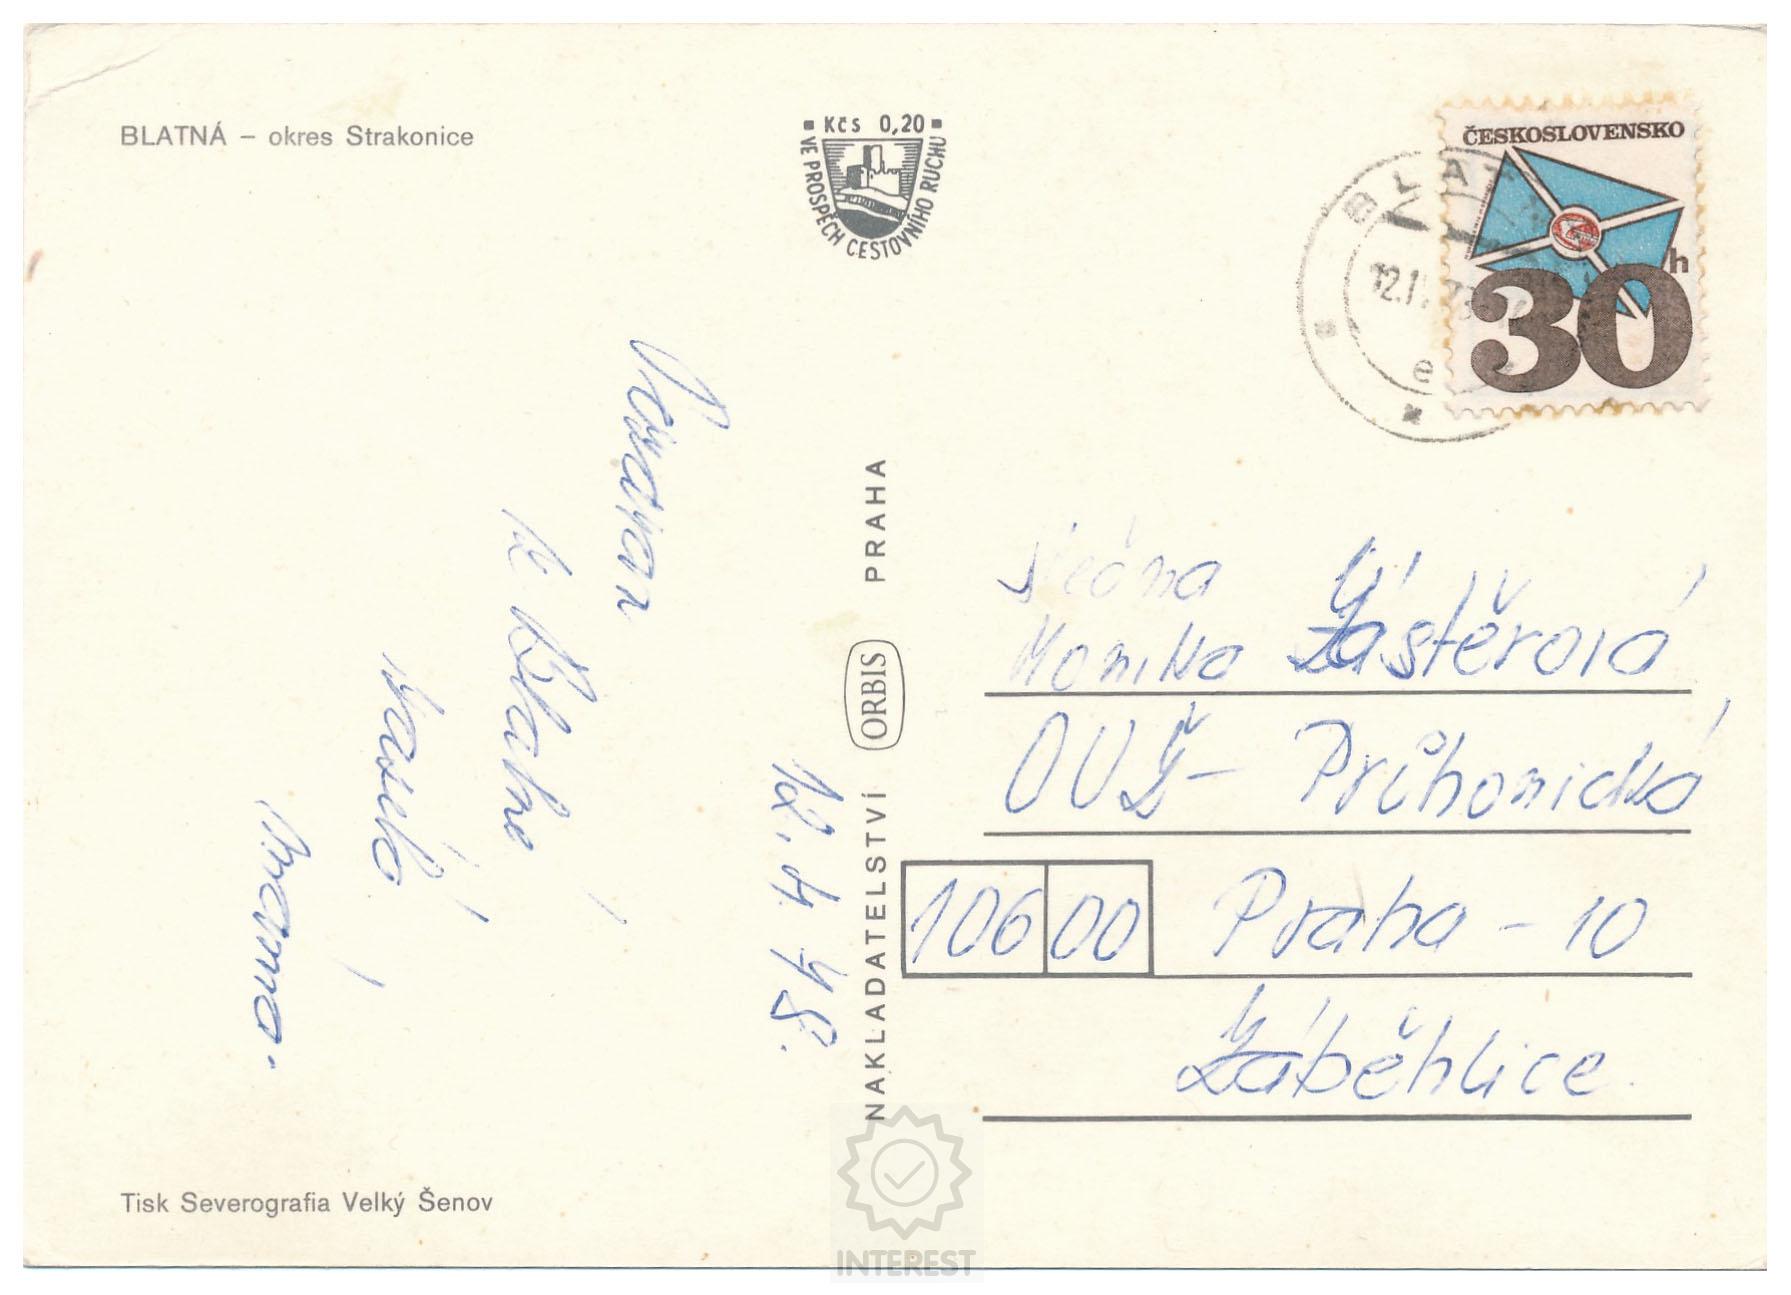 BLATNÁ – okres Strakonice
Kčs 0,20
VE PROSPĚCH CESTOVNÍHO RUCHU
ČESKOSLOVENSKO
30 h
BLAT
12.
e
Blatné
mama.
12. 4. 78.
NAKLADATELSTVÍ ORBIS PRAHA
Monika Zástěrová
OUŽ – Průhonická
106 00 Praha – 10
Záběhlice
Tisk Severografia Velký Šenov
INTEREST